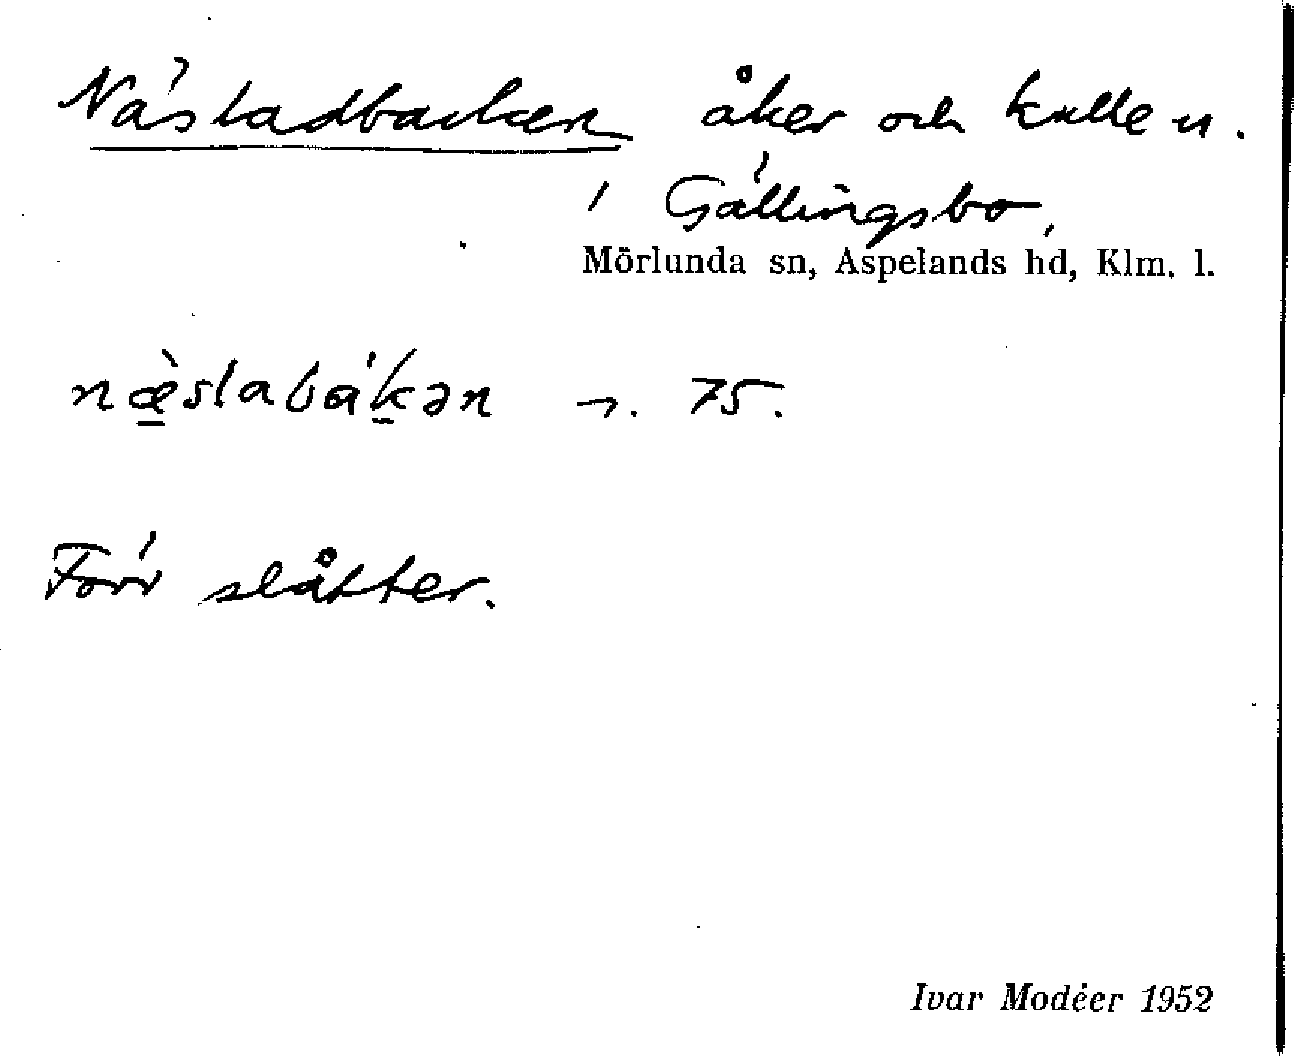 Näsladbacken åker och kulle n.
i Gällingsbo,
Mörlunda sn, Aspelands hd, Klm. l.
næ̀slabákən ¬. 75.
Förr slåtter.
Ivar Modéer 1952